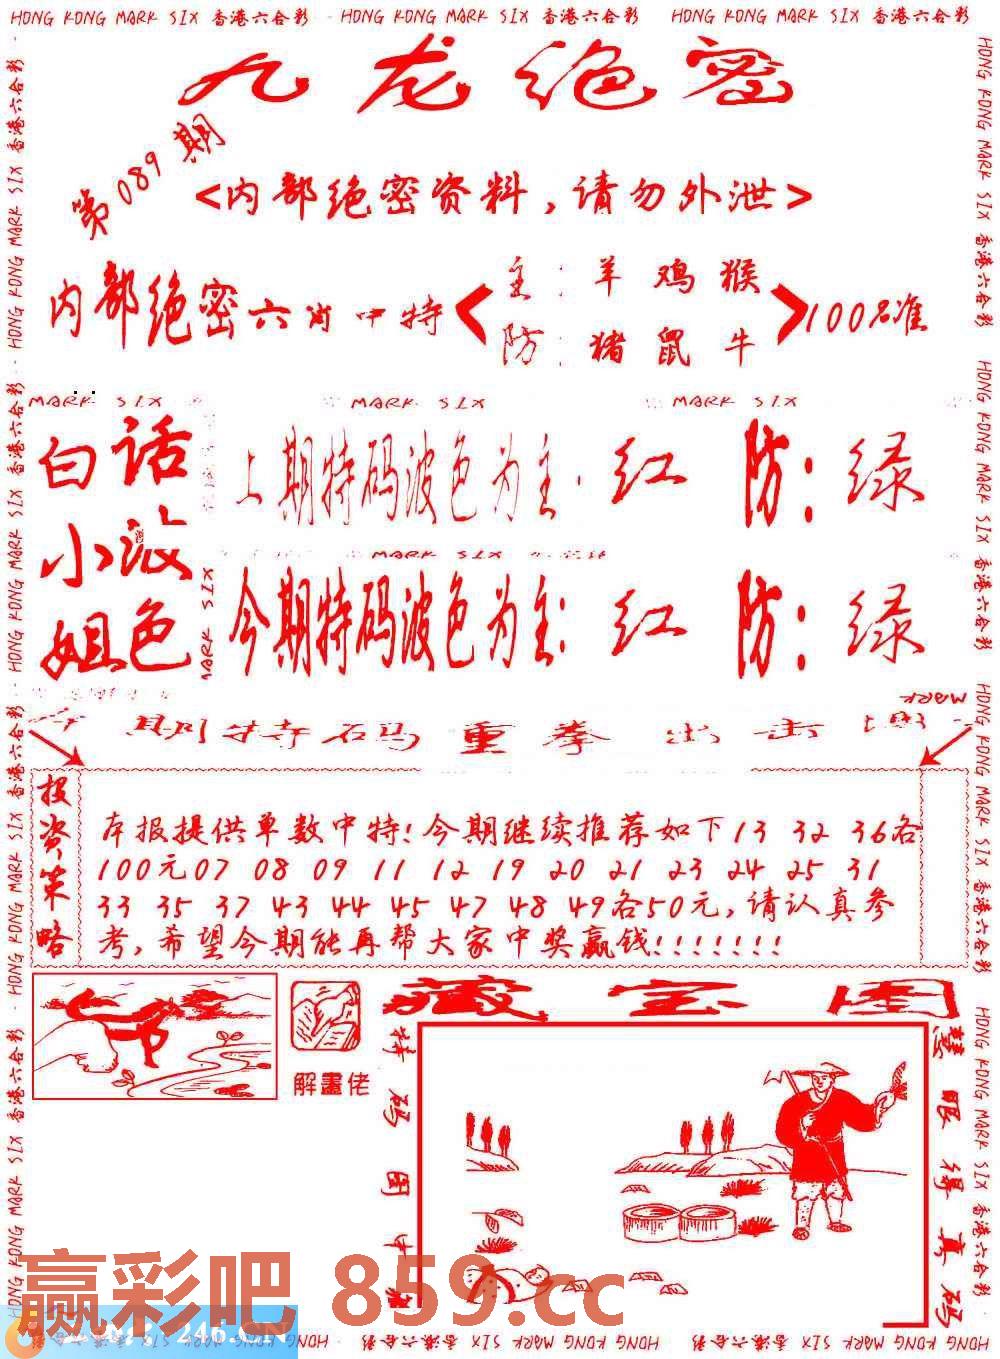 HONG KONG MARK SIX 香港六合彩 HONG KONG MARK SIX 香港六合彩 HONG KONG MARK SIX 香港六合彩
九龙绝密
第089期
<内部绝密资料,请勿外泄>
内部绝密六肖中特
主:羊鸡猴
防:猪鼠牛
100%准
MARK SIX MARK SIX MARK SIX
白话
小波
姐色
上期特码波色为主:红 防:绿
MARK SIX
今期特码波色为主:红 防:绿
MARK SIX
MARK
期特码重拳出击
投资策略
本报提供单数中特!今期继续推荐如下13 32 36各
100元07 08 09 11 12 19 20 21 23 24 25 31
33 35 37 43 44 45 47 48 49各50元,请认真参
考,希望今期能再帮大家中奖赢钱!!!!!!!
解畫佬
藏宝图
特码图中
慧眼得真码
赢彩吧 859.cc
246.CN
HONG KONG MARK SIX 香港六合彩 HONG KONG MARK SIX 香港六合彩